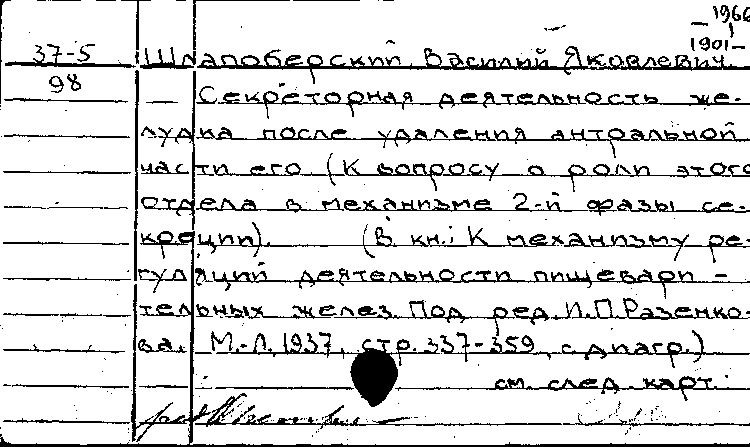 – 1966
1901 –
37-5 Шлапоберский, Василий Яковлевич.
98 — Секреторная деятельность же-
лудка после удаления антральной
части его (К вопросу о роли этого
отдела в механизме 2-й фазы се-
креции). (В кн.: К механизму ре-
гуляций деятельности пищевари-
тельных желез. Под ред. И.П. Разенко-
ва. М.-Л. 1937, стр. 337-359, с диагр.)
см. след. карт.